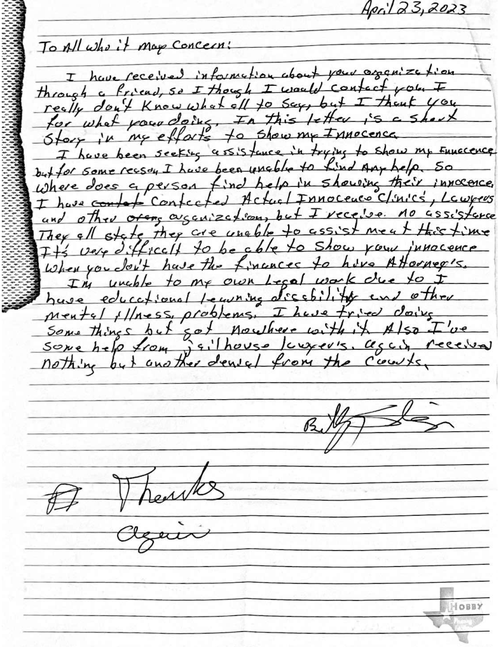 April 23, 2023
To All who it may Concern:
I have received information about your organization
through a friend, so I though I would contact you. I
really don't know what all to say, but I thank you
for what your doing. In this letter is a short
Story in my efforts to show my Innocence.
I have been seeking assistance in trying to show my Ennocence
but for some reason I have been unable to find Any help. So
where does a person find help in showing their innocence
I have Contacted Actual Innocence Clinics, Lawyers
and other organization, but I receive no assistance
They all state they are unable to assist me at this time
It's very difficult to be able to show your innocence
when you don't have the finances to hire Attorney's.
I'm unable to my own legal work due to I
have educational learning disability and other
mental illness, problems. I have tried doing
some things but got nowhere with it. Also I've
some help from jailhouse lawyer's. again received
nothing but another denial from the Courts.
Billy
Thanks
again
HOBBY